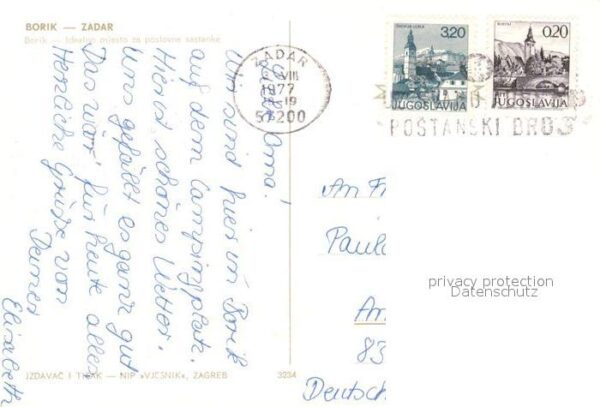 BORIK — ZADAR
Borik — Idealno mjesto za poslovne sastanke
Liebe Oma!
Wir sind hier in Borik
auf dem Campingplatz.
Hier ist schönes Wetter.
Uns gefällt es ganz gut
Das wär' für heute alles
Herzliche Grüße von
Deiner
Elisabeth
ZADAR
VIII
1977
19
57200
3,20
JUGOSLAVIJA
0,20
JUGOSLAVIJA
POŠTANSKI BROJ
An
Paul
privacy protection
Datenschutz
An
83
Deutsch
IZDAVAČ I TISAK — NIP »VJESNIK«, ZAGREB
3234